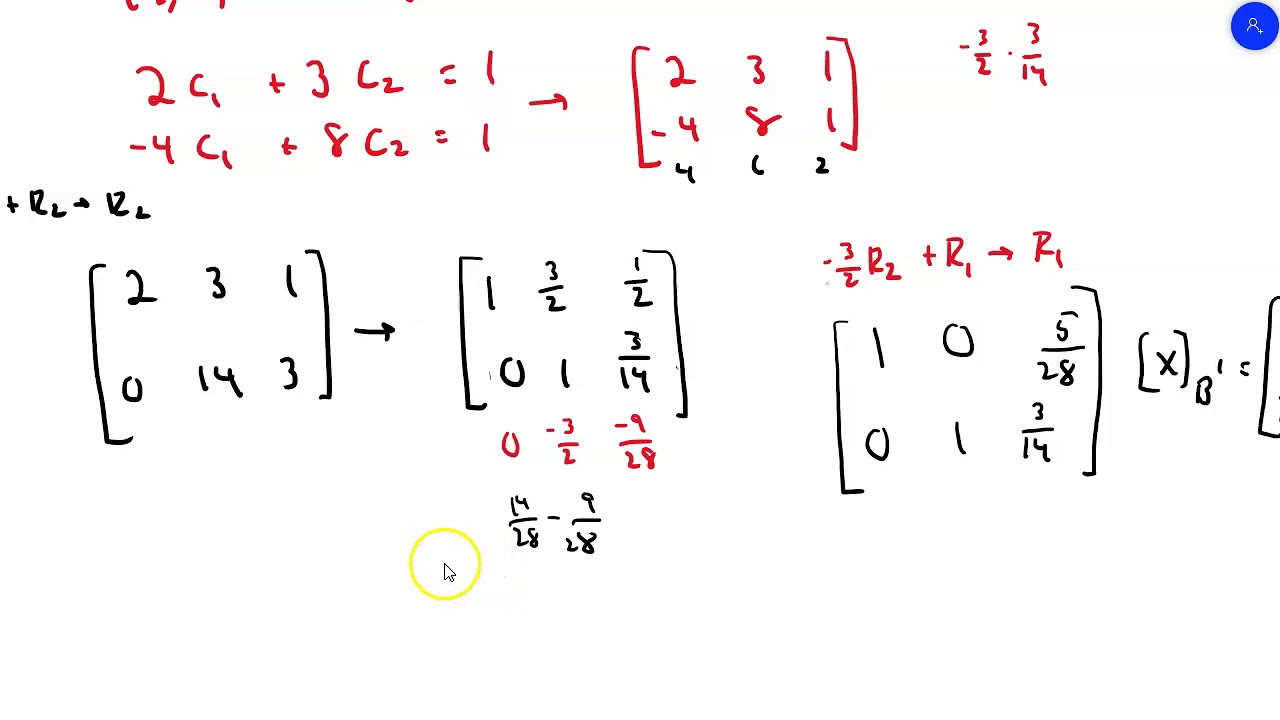 2 C₁ + 3 C₂ = 1 → [ 2 3 1
-4 C₁ + 8 C₂ = 1 -4 8 1 ]
4 6 2
-3/2 · 3/14
+ R₂ → R₂
[ 2 3 1
0 14 3 ]
→ [ 1 3/2 1/2
0 1 3/14 ]
0 -3/2 -9/28
14/28 - 9/28
-3/2 R₂ + R₁ → R₁
[ 1 0 5/28
0 1 3/14 ]
[X]B' = [